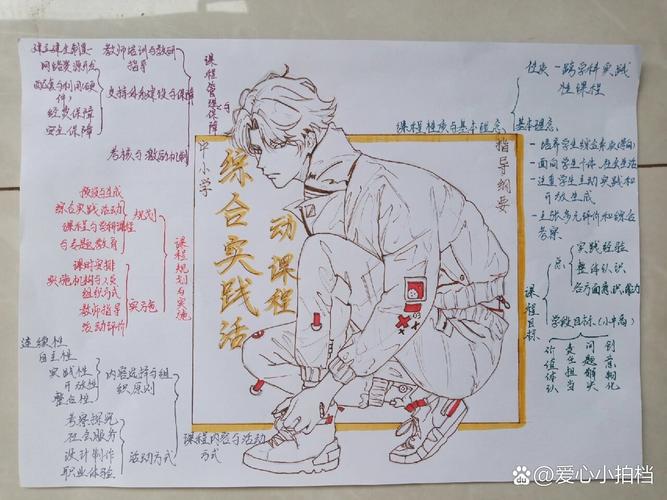 中小学
综合实践活
动课程
指导纲要
课程管理与
保障
教师培训与教研
指导
支持体系建设与保障
网络资源开发
硬件配套与利用
经费保障
安全保障
考核与激励机制
课程性质与基本理念
性质—跨学科实践
性课程
基本理念
- 培养学生综合素质(导向)
- 面向学生个体、社会生活
- 注重学生主动实践和
开放生成
- 主张多元评价和综合
考察
课程目标
总
实践经验
整体认识
各方面意识、能力
学段目标(小中高)
价值体认
责任担当
问题解决
创意物化
课程规划与实施
规划
预设与生成
综合实践活动
课程与学科课程
与专题教育
实施
课时安排
实施机构与人员
组织方式
教师指导
活动评价
课程内容与活动
方式
内容选择与组
织原则
连续性
自主性
实践性
开放性
整合性
活动方式
考察探究
社会服务
设计制作
职业体验
爱心小拍档